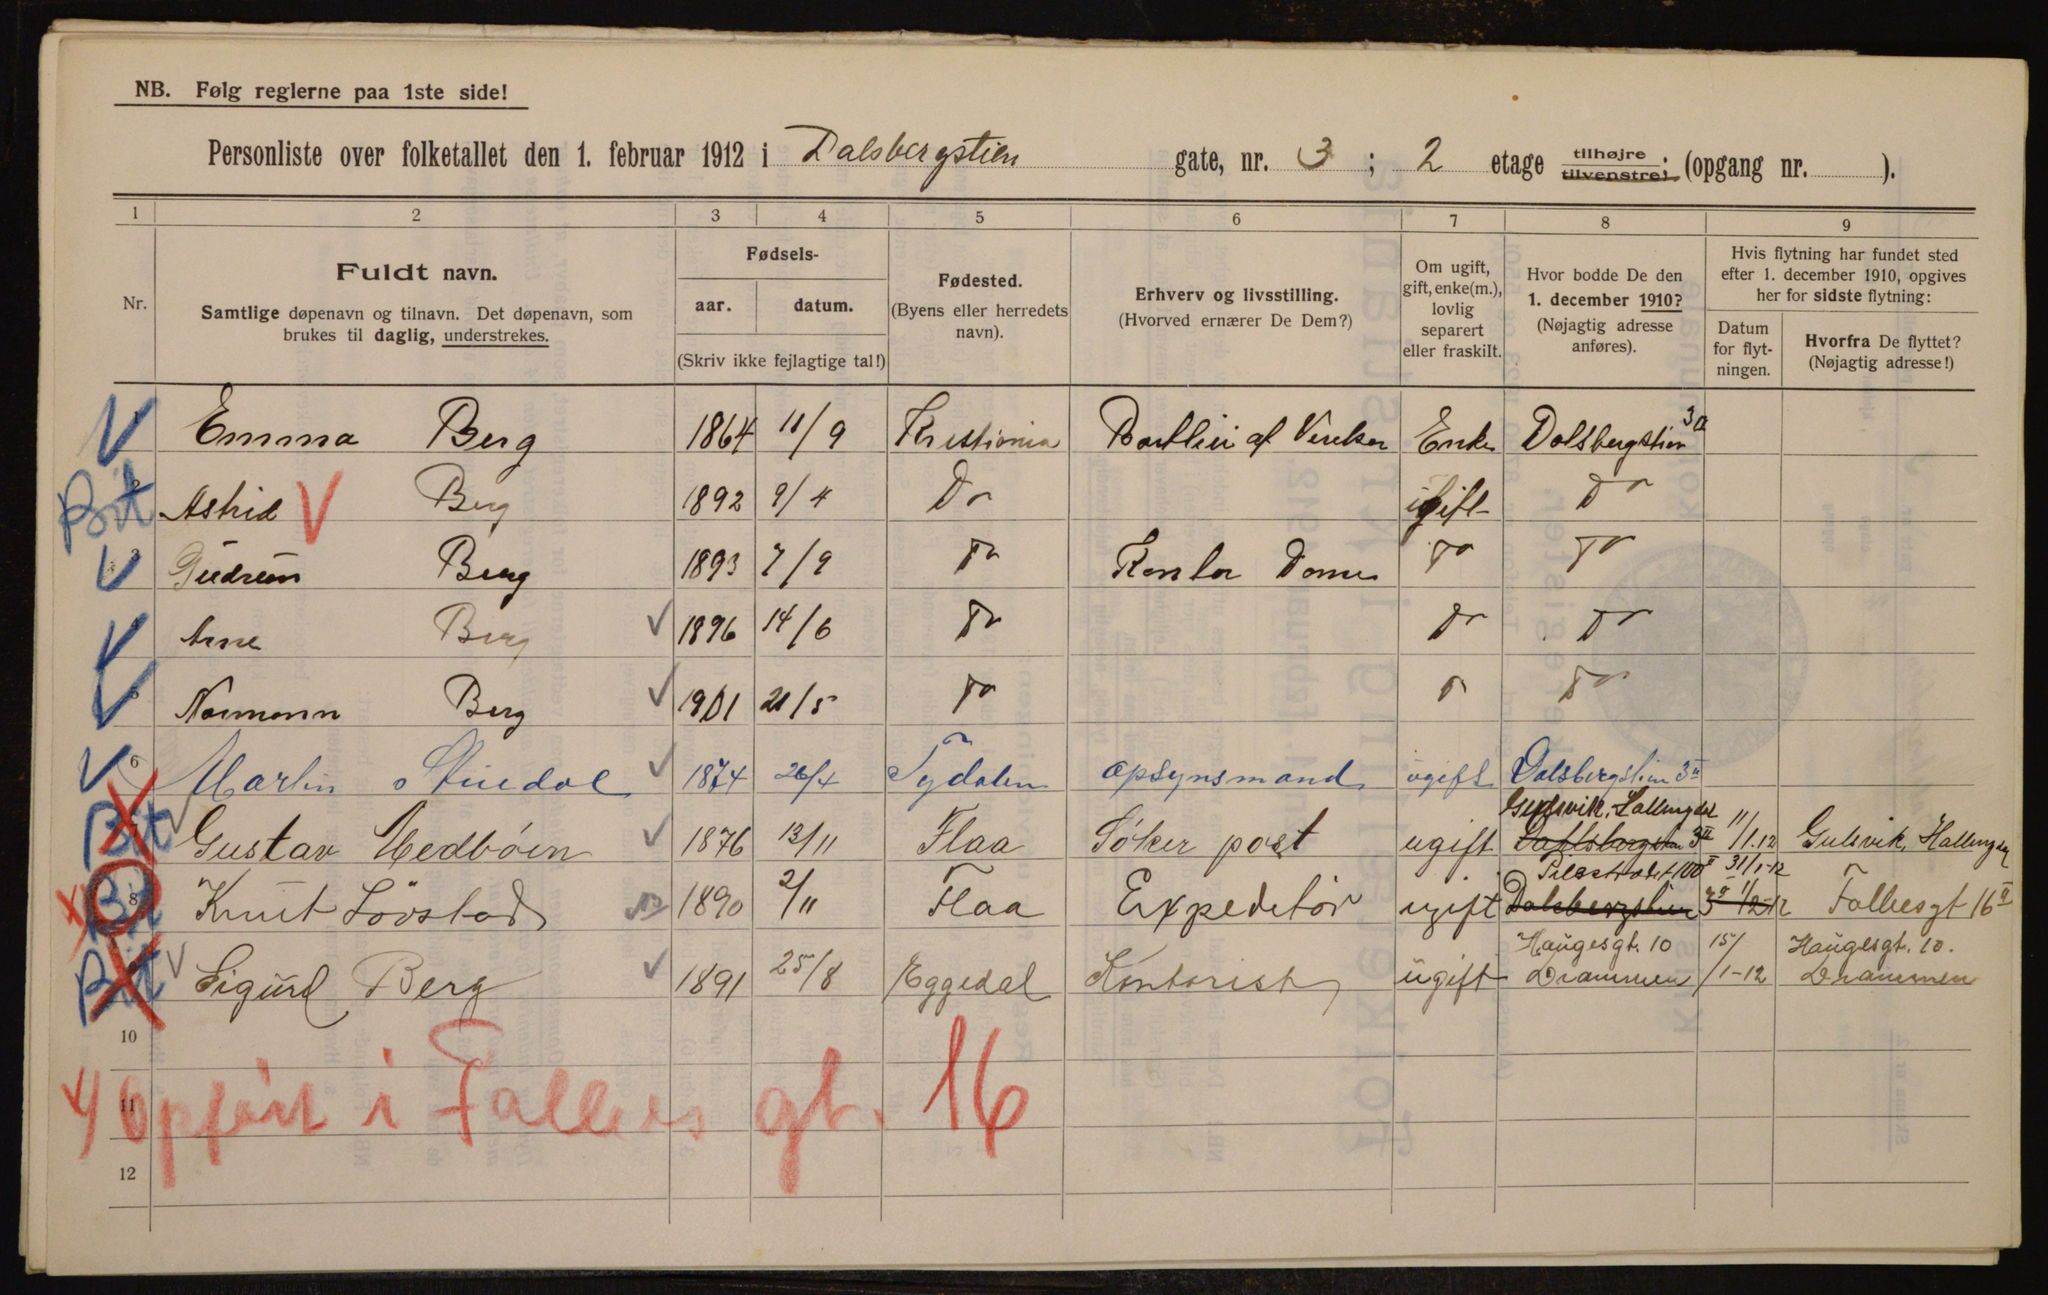 NB. Følg reglerne paa 1ste side!
Personliste over folketallet den 1. februar 1912 i Dalsbergstien gate, nr. 3; 2 etage tilhøjre tilvenstre; (opgang nr. ).
1 2 3 4 5 6 7 8 9
Nr.
Fuldt navn.
Samtlige døpenavn og tilnavn. Det døpenavn, som
brukes til daglig, understrekes.
Fødsels-
aar. datum.
(Skriv ikke fejlagtige tal!)
Fødested.
(Byens eller herredets
navn).
Erhverv og livsstilling.
(Hvorved ernærer De Dem?)
Om ugift,
gift, enke(m.),
lovlig
separert
eller fraskilt.
Hvor bodde De den
1. december 1910?
(Nøjagtig adresse
anføres).
Hvis flytning har fundet sted
efter 1. december 1910, opgives
her for sidste flytning:
Datum
for flyt-
ningen.
Hvorfra De flyttet?
(Nøjagtig adresse!)
Emma Berg 1864 11/9 Kristiania af Enke Dalsbergstien 3a
Bit 2 Astrid V Berg 1892 9/4 Do ugift Do
3 Gudrun Berg 1893 7/9 Do Kontor Dame Do Do
Arne Berg 1896 14/6 Do Do Do
Normann Berg 1901 21/5 Do Do Do
6 Martin Stuedal 1874 26/4 Tydalen opsynsmand ugift Dalsbergstien 3 II
Bit Gustav Medbøen 1876 13/11 Flaa Søker post ugift Gulsvik, Hallingdal Dahlsbergstien 3 II 11/1.12 Gulsvik, Hallingdal
8 Knut Løvstad 1890 2/11 Flaa Expeditør ugift Pilestrædet 100 II Dalsbergstien 3 II 31/1-12 1/2-12 Falbesgt 16 II
Bit Sigurd Berg 1891 25/8 Eggedal Kontorist ugift Haugesgt. 10 Drammen 15/1-12 Haugesgt. 10. Drammen
10
11 Opført i Falbes gt. 16
12